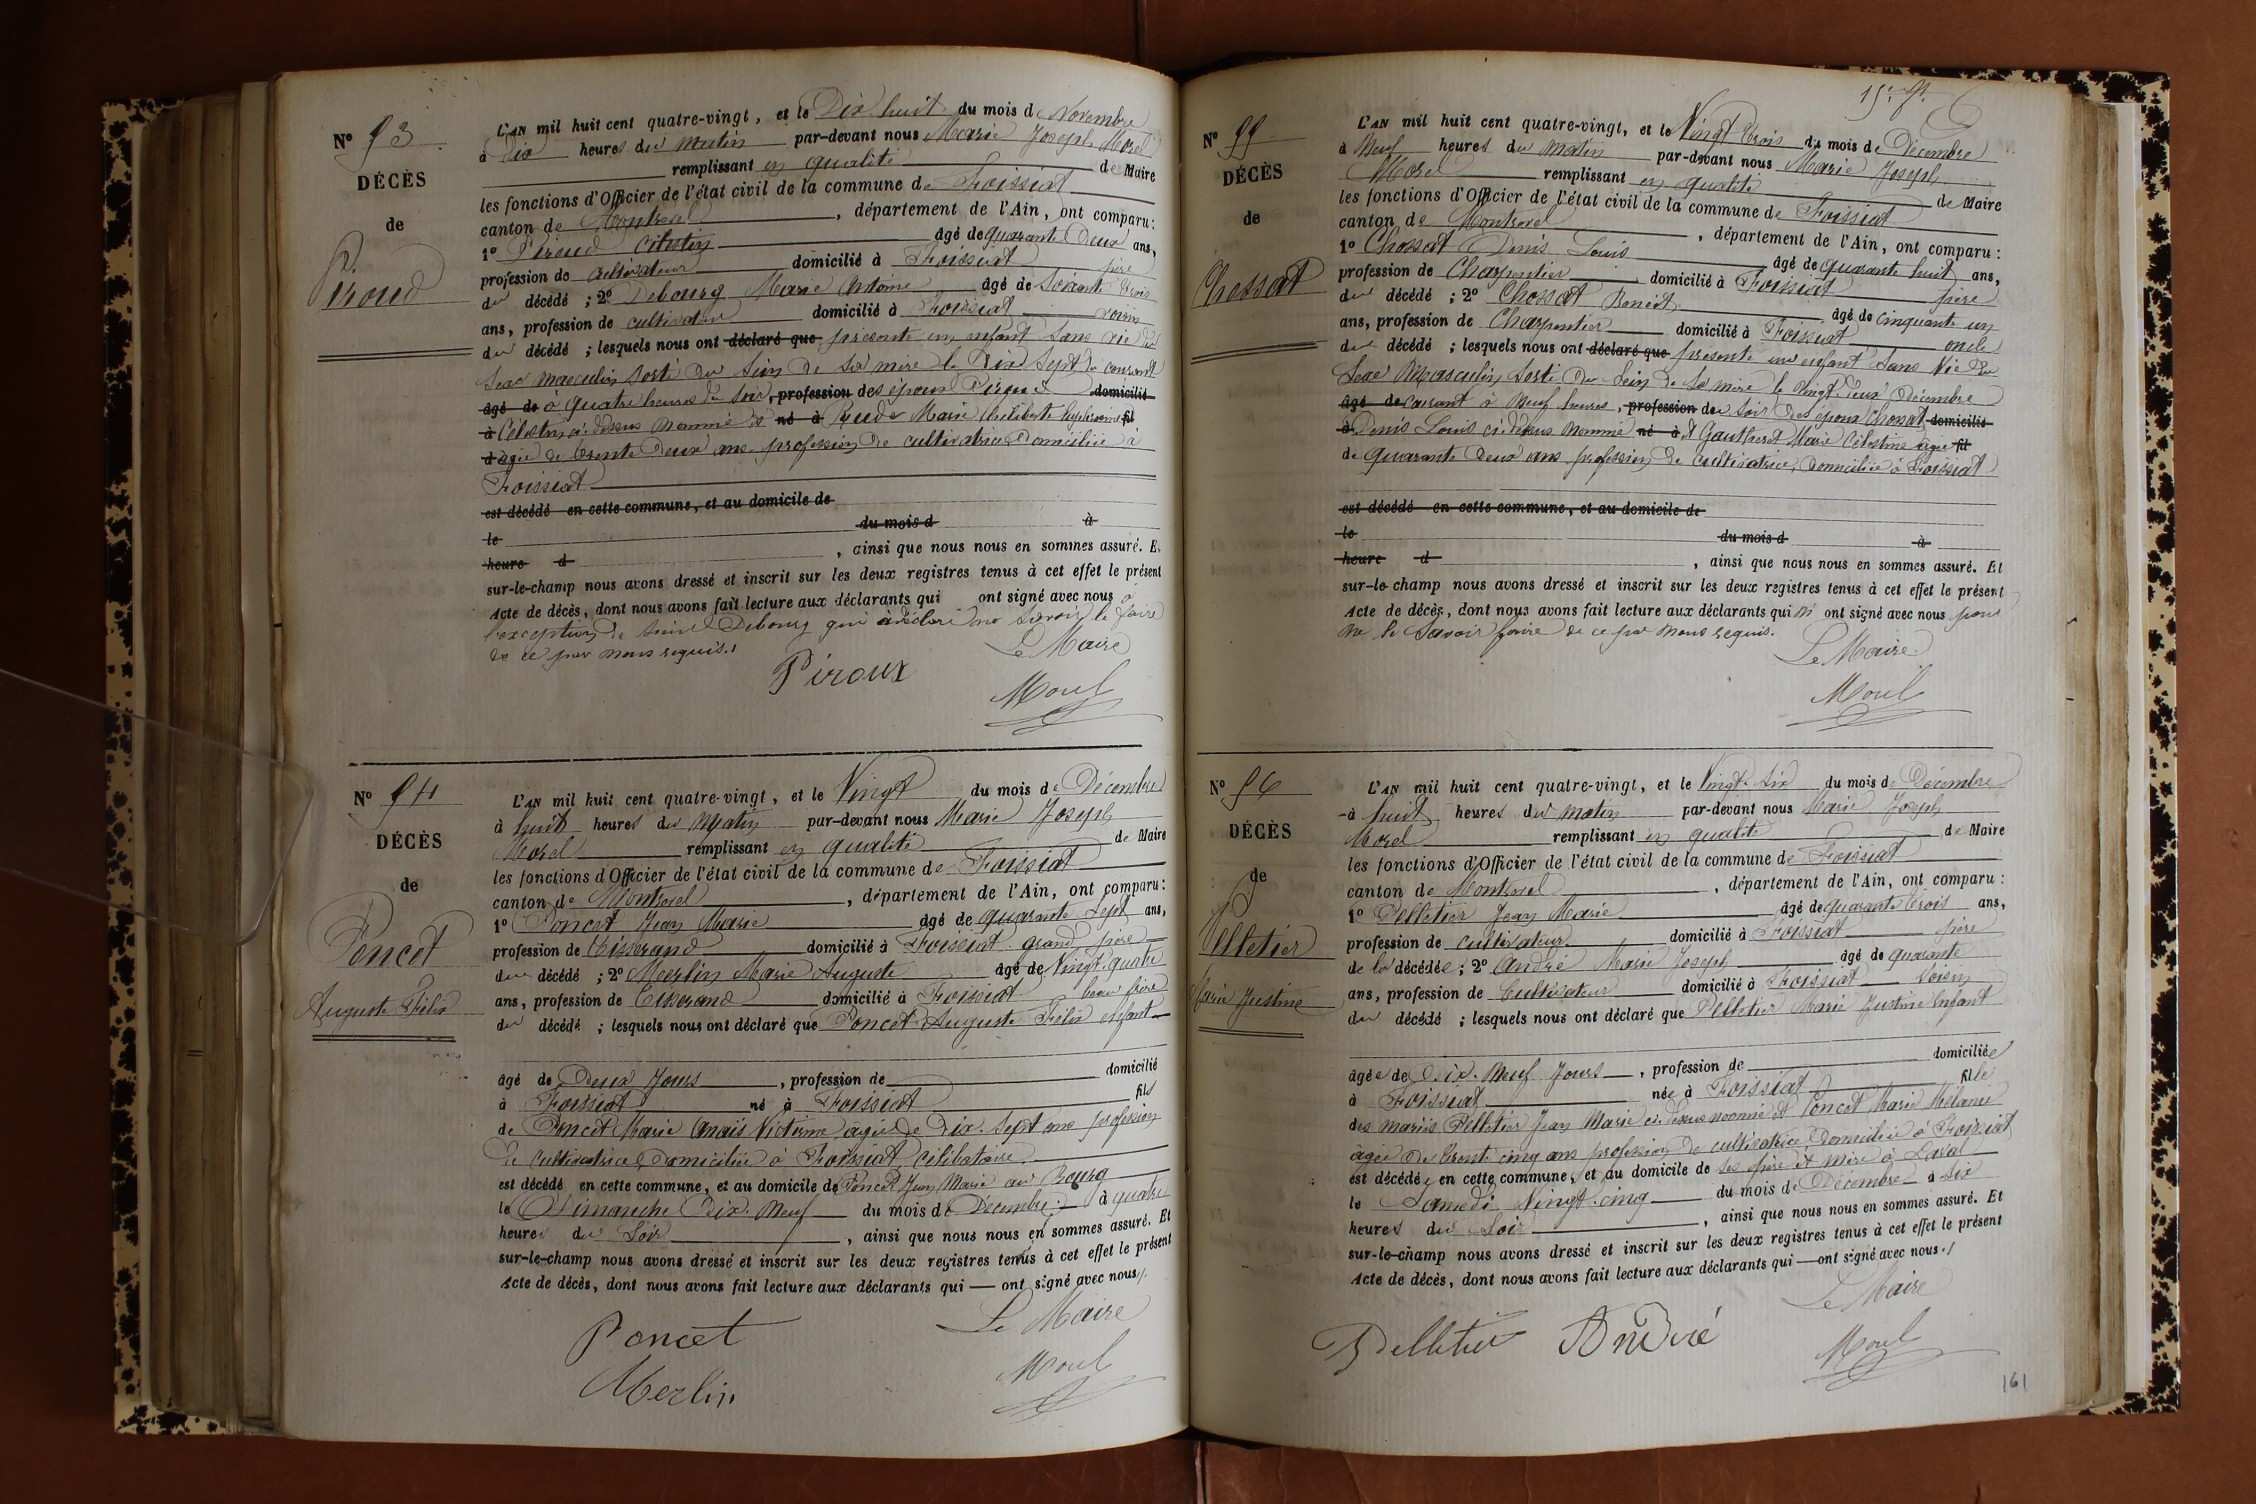 Nº 53
DÉCÈS
de
Piroud
L'AN mil huit cent quatre-vingt, et le Dix huit du mois d Novembre
à Dix heures du matin par-devant nous Marie Joseph Morel
remplissant en qualité de Maire
les fonctions d'Officier de l'état civil de la commune de Foissiat
canton de Montrevel, département de l'Ain, ont comparu:
1º Piroud Célestin âgé de quarante Deux ans,
profession de cultivateur domicilié à Foissiat père
du décédé ; 2º Debourg Marie Antoine âgé de Soixante trois
ans, profession de cultivateur domicilié à Foissiat voisin
du décédé ; lesquels nous ont déclaré que présenté un enfant Sans vie du
Sexe masculin sorti du sein de Sa mère le Dix Sept du courant
âgé de à quatre heures du Soir, profession des époux domicilié
à Célestin ci-dessus nommé né à Marie fil
d âgée de trente Deux ans profession de cultivatrice Domiciliée à
Foissiat
est décédé en cette commune, et au domicile de
le du mois d à
heure d , ainsi que nous nous en sommes assuré. Et
sur-le-champ nous avons dressé et inscrit sur les deux registres tenus à cet effet le présent
acte de décès, dont nous avons fait lecture aux déclarants qui ont signé avec nous à
l'exception de Debourg qui a déclaré ne savoir le faire
de ce par nous requis.
Le Maire
Piroux
Morel
Nº 54
DÉCÈS
de
Poncet
Auguste Félix
L'AN mil huit cent quatre-vingt, et le Vingt du mois de Décembre
à huit heures du Matin par-devant nous Marie Joseph
Morel remplissant en qualité de Maire
les fonctions d'Officier de l'état civil de la commune de Foissiat
canton de Montrevel, département de l'Ain, ont comparu:
1º Poncet Jean Marie âgé de quarante Sept ans,
profession de Tisserand domicilié à Foissiat grand père
du décédé ; 2º Merlin Marie Auguste âgé de Vingt quatre
ans, profession de Tisserand domicilié à Foissiat beau frère
du décédé ; lesquels nous ont déclaré que Poncet Auguste Félix enfant
âgé de Deux Jours, profession de domicilié
à Foissiat né à Foissiat fils
de Poncet Marie Anaïs Victorine âgée de Dix-Sept ans profession
de cultivatrice Domiciliée à Foissiat célibataire
est décédé en cette commune, et au domicile de Poncet Jean Marie au Bourg
le Dimanche Dix-Neuf du mois de Décembre à quatre
heures du Soir, ainsi que nous nous en sommes assuré. Et
sur-le-champ nous avons dressé et inscrit sur les deux registres tenus à cet effet le présent
acte de décès, dont nous avons fait lecture aux déclarants qui ont signé avec nous.
Le Maire
Poncet
Morel
Merlin
Nº 55
DÉCÈS
de
Chossat
L'AN mil huit cent quatre-vingt, et le Vingt trois du mois de Décembre
à Neuf heures du matin par-devant nous Marie Joseph
Morel remplissant en qualité de Maire
les fonctions d'Officier de l'état civil de la commune de Foissiat
canton de Montrevel, département de l'Ain, ont comparu:
1º Chossat Denis Louis âgé de quarante huit ans,
profession de Charpentier domicilié à Foissiat père
du décédé ; 2º Chossat Benoit âgé de cinquante un
ans, profession de Charpentier domicilié à Foissiat oncle
du décédé ; lesquels nous ont déclaré que présenté un enfant Sans Vie du
Sexe Masculin Sorti du Sein de Sa mère le Vingt Deux Décembre
âgé de courant à Neuf heures, profession de du Soir Des époux Chossat domicilié
à Denis Louis ci-dessus nommé né à et Gautheret Marie Célestine âgée fil
de quarante Deux ans profession de cultivatrice Domiciliée à Foissiat
est décédé en cette commune, et au domicile de
le du mois d à
heure d , ainsi que nous nous en sommes assuré. Et
sur-le-champ nous avons dressé et inscrit sur les deux registres tenus à cet effet le présent
acte de décès, dont nous avons fait lecture aux déclarants qui n' ont signé avec nous pour
ne le savoir faire de ce par nous requis.
Le Maire
Morel
Nº 56
DÉCÈS
de
Pelletier
Marie Justine
L'AN mil huit cent quatre-vingt, et le Vingt-Six du mois de Décembre
à huit heures du matin par-devant nous Marie Joseph
Morel remplissant en qualité de Maire
les fonctions d'Officier de l'état civil de la commune de Foissiat
canton de Montrevel, département de l'Ain, ont comparu:
1º Pelletier Jean Marie âgé de quarante trois ans,
profession de cultivateur domicilié à Foissiat père
de la décédée ; 2º André Marie Joseph âgé de quarante
ans, profession de Cultivateur domicilié à Foissiat Voisin
du décédé ; lesquels nous ont déclaré que Pelletier Marie Justine Enfant
âgée de Dix-Neuf Jours, profession de domiciliée
à Foissiat née à Foissiat fille
des mariés Pelletier Jean Marie ci-dessus nommé et Poncet Marie Mélanie
âgée de trente cinq ans profession de cultivatrice Domiciliée à Foissiat
est décédé en cette commune, et au domicile de ses père et mère à Laval
le Samedi Vingt-cinq du mois de Décembre à Six
heures du Soir, ainsi que nous nous en sommes assuré. Et
sur-le-champ nous avons dressé et inscrit sur les deux registres tenus à cet effet le présent
acte de décès, dont nous avons fait lecture aux déclarants qui ont signé avec nous.
Le Maire
Pelletier André
Morel
161